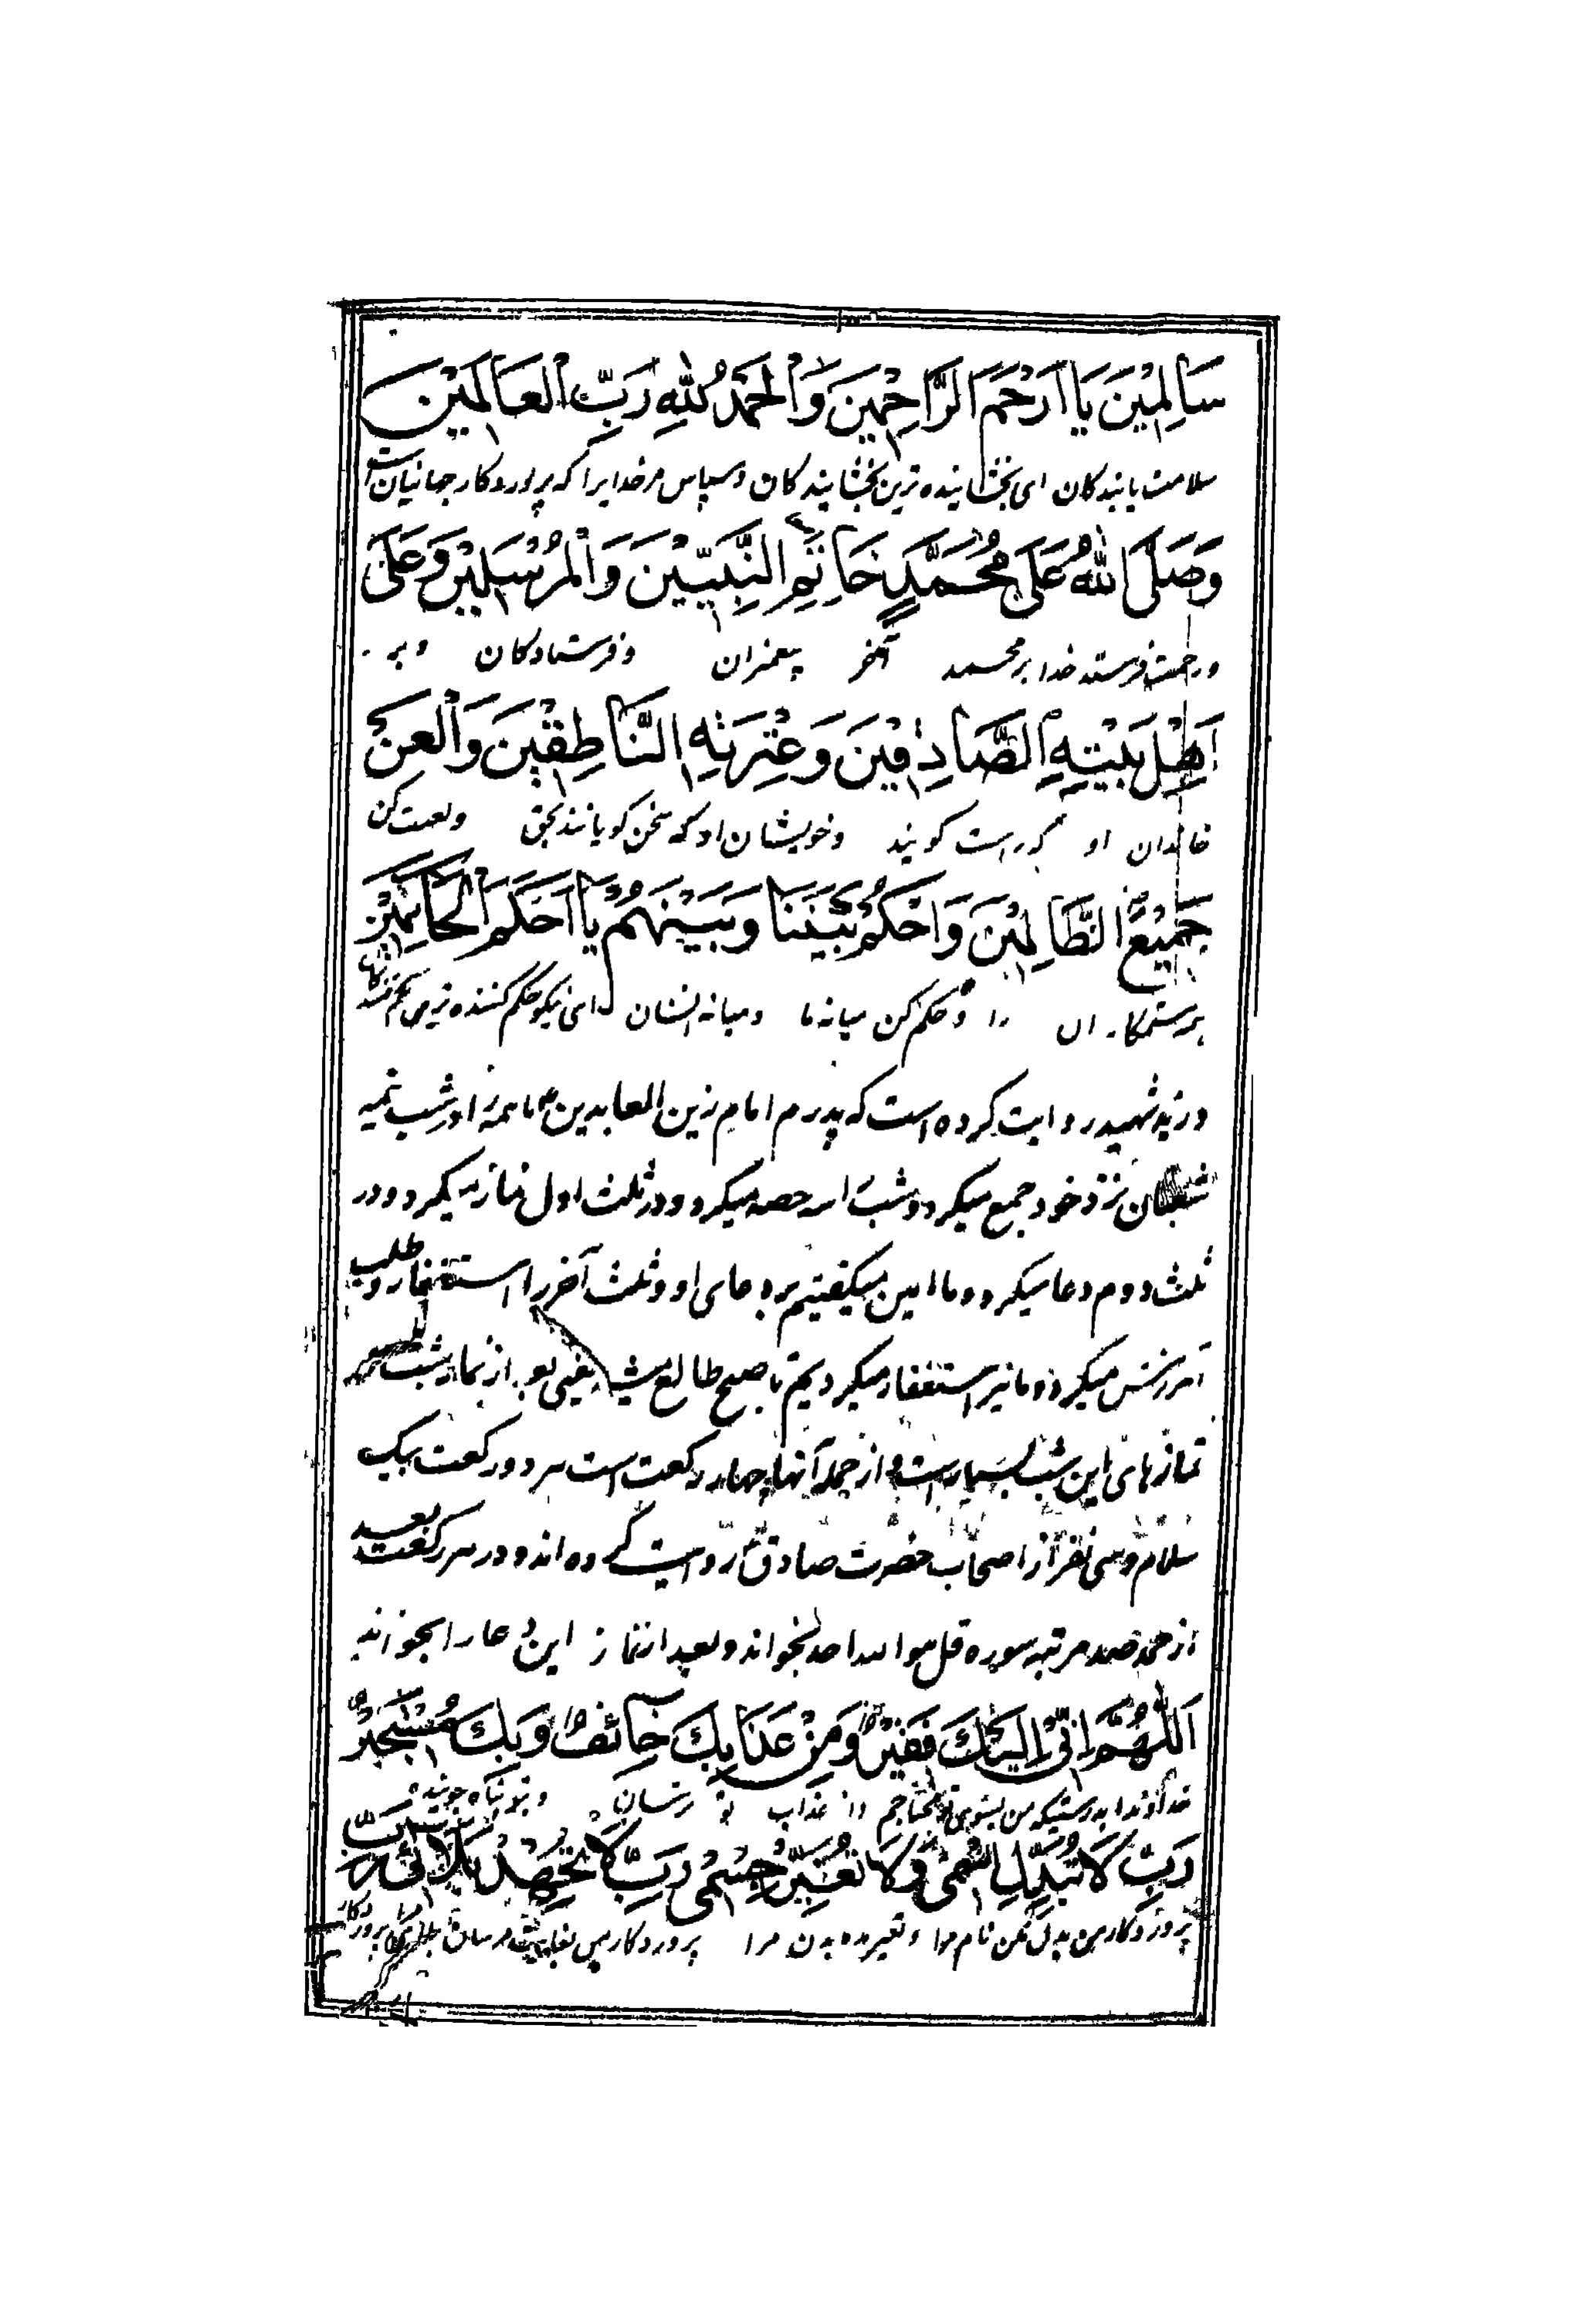 سَالِمِيْنَ يَا اَرْحَمَ الرَّاحِمِيْنَ وَالْحَمْدُ لِلّٰهِ رَبِّ الْعَالَمِيْنَ
سلامت یابندکان ای بخشاینده ترین بخشایندکان و سپاس مر خدایرا که پروردکار جهانیان است
وَصَلَّى اللّٰهُ عَلٰى مُحَمَّدٍ خَاتَمِ النَّبِيّيْنَ وَالْمُرْسَلِيْنَ وَعَلٰى
و رحمت فرستد خدا بر محمد آخر پیغمبران و فرستادکان و بر
اَهْلِ بَيْتِهِ الصَّادِقِيْنَ وَعِتْرَتِهِ النَّاطِقِيْنَ وَالْعَنْ
خاندان او که راست کویند و خویشان او که سخن کویانند بحق و لعنت کن
جَمِيْعَ الظَّالِمِيْنَ وَاحْكُمْ بَيْنَنَا وَبَيْنَهُمْ يَا اَحْكَمَ الْحَاكِمِيْنَ
بر ستمکاران را و حکم کن میانه ما و میانه ایشان ای نیکو حکم کننده ترین حکم کنندکان
و زید شهید روایت کرده است که پدرم امام زین العابدین ع ما همه را در شب نیمه
شعبان نزد خود جمع میکرد و شب را سه حصه میکرد و در ثلث اول نماز میکرد و در
ثلث دوم دعا میکرد و ما امین میکفتیم بر دعای او و ثلث آخر را استغفار و طلب
آمرزش میکرد و ما نیز استغفار میکردیم تا صبح طالع میشد یعنی بعد از نماز شب
نمازهای این شب بسیار است و از جمله آنها چهار رکعت است هر دو رکعت بیک
سلام و سی نفر از اصحاب حضرت صادق ع روایت کرده اند و در هر رکعت بعد
از حمد صد مرتبه سوره قل هو الله احد بخواند و بعد از نماز این دعا را بخواند
اَللّٰهُمَّ اِنِّيْ اِلَيْكَ فَقِيْرٌ وَمِنْ عَذَابِكَ خَائِفٌ وَبِكَ مُسْتَجِيْرٌ
خداوندا بدرستیکه من بسوی تو محتاجم و از عذاب تو ترسان و بتو پناه جوینده
رَبِّ لَا تُبَدِّلْ اسْمِيْ وَلَا تُغَيِّرْ جِسْمِيْ رَبِّ لَا تَجْهَدْ بَلَائِيْ رَبِّ
پروردکار من بدل مکن نام مرا و تغیر مده بدن مرا پروردکار من بغایت مرسان بلای مرا پروردکار